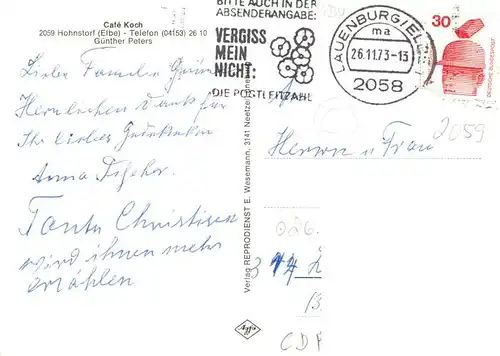 Café Koch
2059 Hohnstorf (Elbe) - Telefon (04153) 26 10
Günther Peters
BITTE AUCH IN DER
ABSENDERANGABE:
VERGISS
MEIN
NICHT:
DIE POSTLEITZAHL
LAUENBURG/EL
ma
26.11.73-13
2058
30
DEUTSCHE BUNDESPOST
Liebe Familie
Herzlichen Dank für
Ihr liebes Gedenken
Anna
Tante Christine
wird ihnen mehr
erzählen
Verlag REPRODIENST E. Wesemann, 3141 Neetze
Agfa
2059
Herrn u Frau
026.